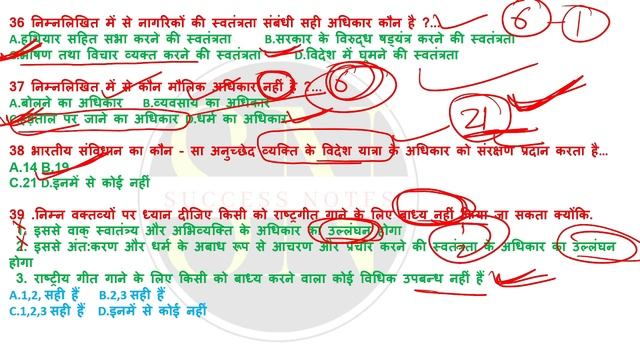 36 निम्नलिखित में से नागरिकों की स्वतंत्रता संबंधी सही अधिकार कौन है ?..
6 - 1
A.हथियार सहित सभा करने की स्वतंत्रता B.सरकार के विरुध्ध षड्यंत्र करने की स्वतंत्रता
भाषण तथा विचार व्यक्त करने की स्वतंत्रता D.विदेश में घूमने की स्वतंत्रता
37 निम्नलिखित में से कौन मौलिक अधिकार नहीं है ?...
6
A.बोलने का अधिकार B.व्यवसाय का अधिकार
हड़ताल पर जाने का अधिकार D.धर्म का अधिकार
21
38 भारतीय संविधान का कौन - सा अनुच्छेद व्यक्ति के विदेश यात्रा के अधिकार को संरक्षण प्रदान करता है...
A.14 B.19
C.21 D.इनमें से कोई नहीं
SUCCESS NOTES
39 .निम्न वक्तव्यों पर ध्यान दीजिए किसी को राष्ट्रगीत गाने के लिए बाध्य नहीं किया जा सकता क्योंकि.
1. इससे वाक् स्वातंत्र्य और अभिव्यक्ति के अधिकार का उल्लंघन होगा
1
2
2. इससे अंत:करण और धर्म के अबाध रूप से आचरण और प्रचार करने की स्वतंत्रता के अधिकार का उल्लंघन
होगा
3. राष्ट्रीय गीत गाने के लिए किसी को बाध्य करने वाला कोई विधिक उपबन्ध नहीं हैं
A.1,2, सही हैं B.2,3 सही हैं
C.1,2,3 सही हैं D.इनमें से कोई नहीं